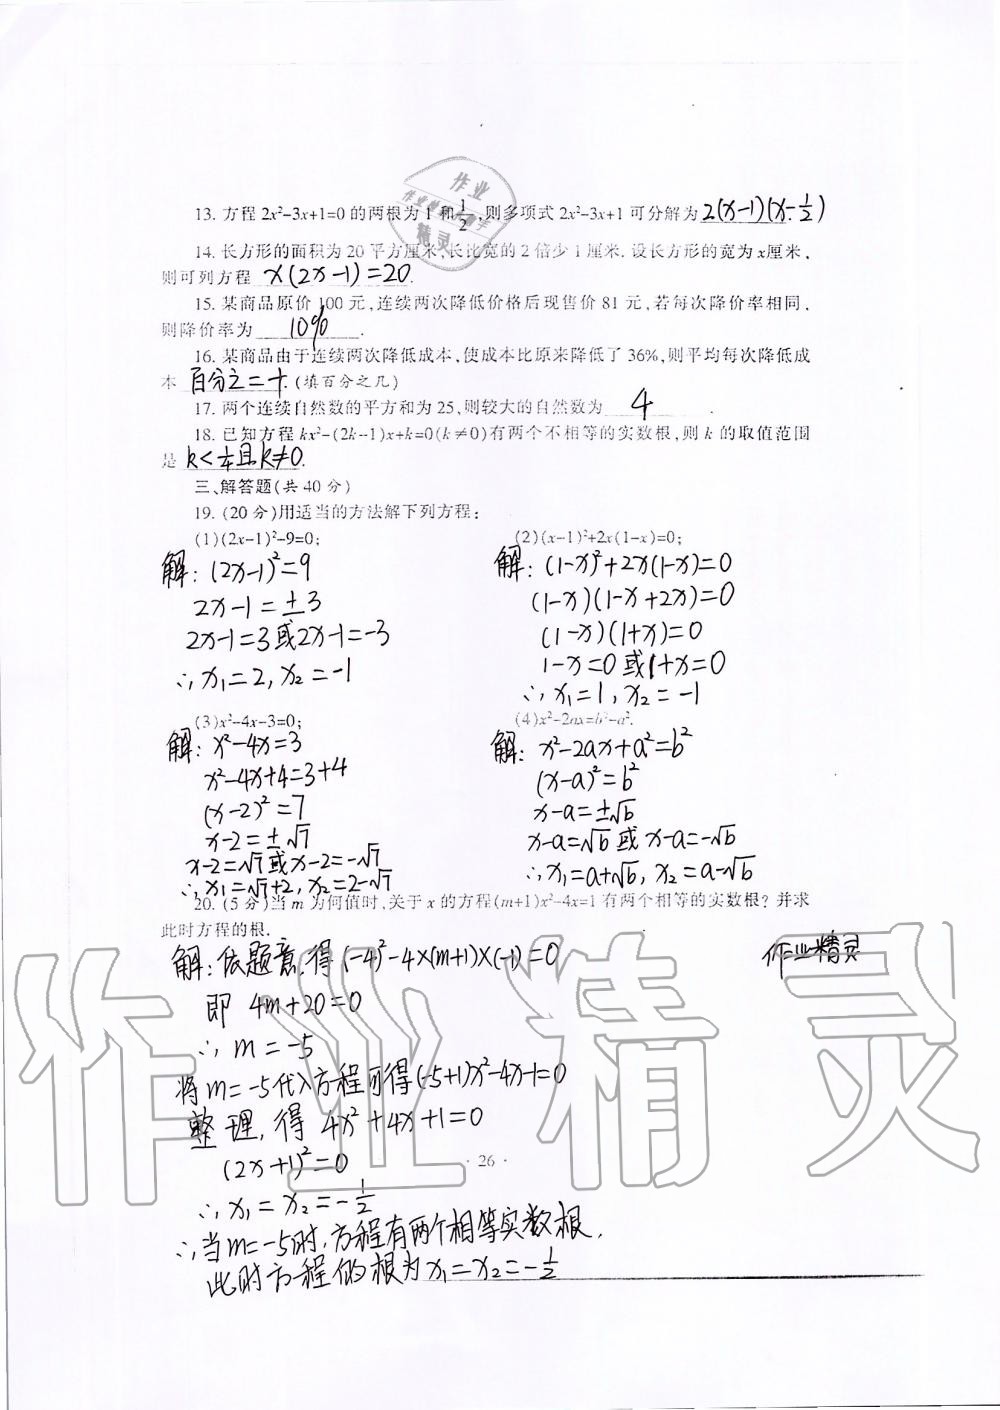 13. 方程 2x²-3x+1=0 的两根为 1 和 1/2 ,则多项式 2x²-3x+1 可分解为 2(x-1)(x-1/2)
14. 长方形的面积为 20 平方厘米,长比宽的 2 倍少 1 厘米. 设长方形的宽为 x厘米,
则可列方程 x(2x-1)=20.
15. 某商品原价 100 元,连续两次降低价格后现售价 81 元,若每次降价率相同,
则降价率为 10% .
16. 某商品由于连续两次降低成本,使成本比原来降低了 36%,则平均每次降低成
本 百分之二十. (填百分之几)
17. 两个连续自然数的平方和为 25,则较大的自然数为 4 .
18. 已知方程 kx²-(2k-1)x+k=0(k≠0)有两个不相等的实数根,则 k 的取值范围
是 k<1/4且k≠0.
三、解答题(共 40 分)
19. (20 分)用适当的方法解下列方程:
(1)(2x-1)²-9=0;
解: (2x-1)²=9
2x-1=±3
2x-1=3或2x-1=-3
∴x₁=2, x₂=-1
(2)(x-1)²+2x(1-x)=0;
解: (1-x)²+2x(1-x)=0
(1-x)(1-x+2x)=0
(1-x)(1+x)=0
1-x=0或1+x=0
∴x₁=1, x₂=-1
(3)x²-4x-3=0;
解: x²-4x=3
x²-4x+4=3+4
(x-2)²=7
x-2=±√7
x-2=√7或x-2=-√7
∴x₁=√7+2, x₂=2-√7
(4)x²-2ax=b²-a².
解: x²-2ax+a²=b²
(x-a)²=b²
x-a=±√b
x-a=√b 或 x-a=-√b
∴x₁=a+√b, x₂=a-√b
20. (5 分)当 m 为何值时,关于 x 的方程(m+1)x²-4x=1 有两个相等的实数根? 并求
此时方程的根.
解: 依题意,得(-4)²-4×(m+1)×(-1)=0
作业精灵
即 4m+20=0
∴m=-5
将m=-5代入方程可得(-5+1)x²-4x-1=0
整理,得 4x²+4x+1=0
(2x+1)²=0
· 26 ·
∴x₁=x₂=-1/2
∴当m=-5时,方程有两个相等实数根,
此时方程的根为x₁=x₂=-1/2
作业精灵